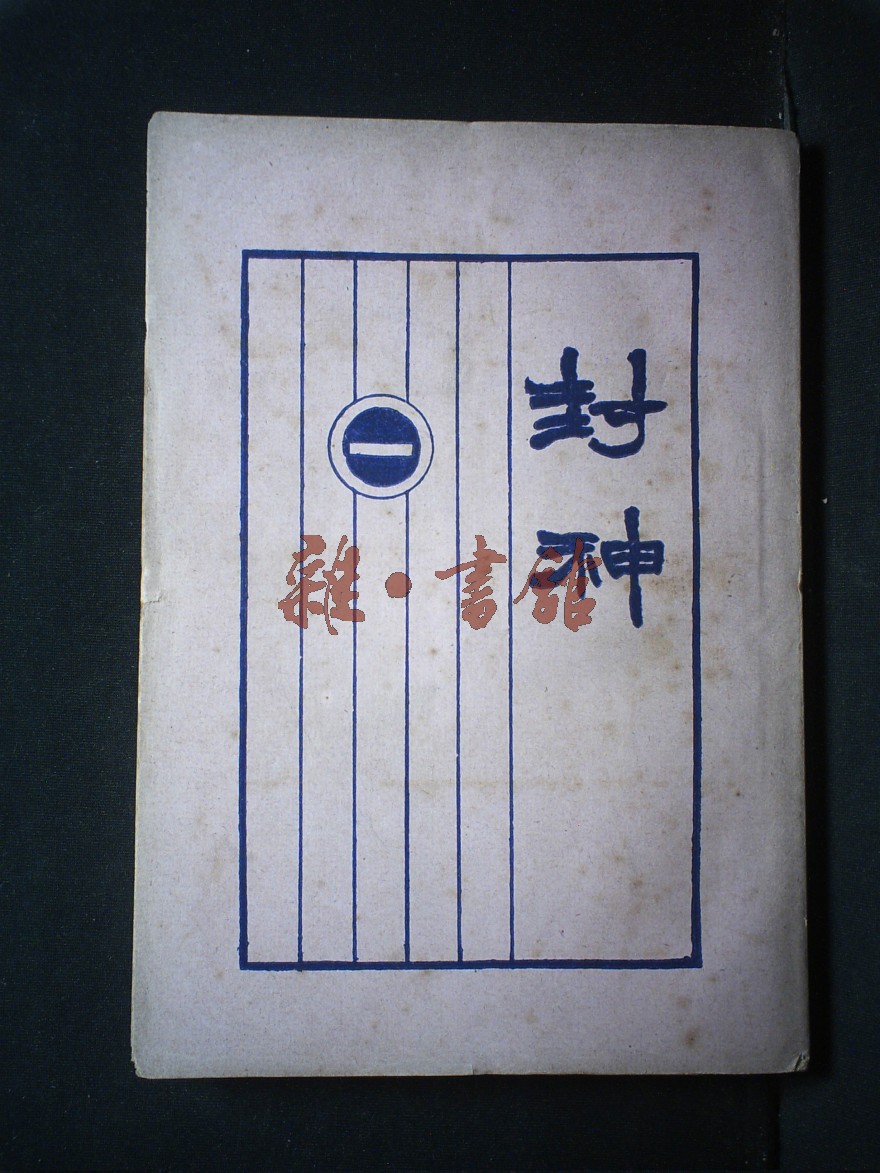 封神
一
雜·書館